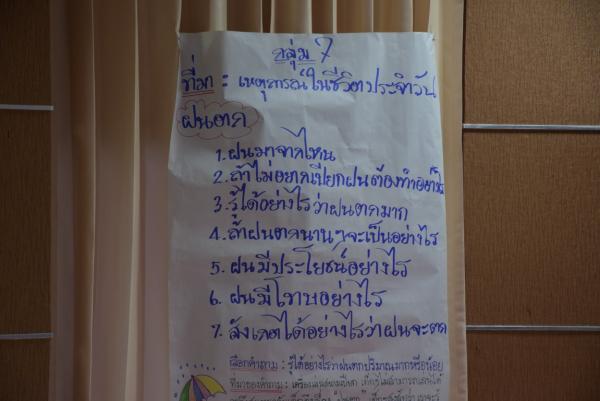 กลุ่ม 7
ที่มา : เหตุการณ์ในชีวิตประจำวัน
ฝนตก
1. ฝนมาจากไหน
2. ถ้าไม่อยากเปียกฝนต้องทำอย่างไร
3. รู้ได้อย่างไรว่าฝนตกมาก
4. ถ้าฝนตกนานๆจะเป็นอย่างไร
5. ฝนมีประโยชน์อย่างไร
6. ฝนมีโทษอย่างไร
7. สังเกตได้อย่างไรว่าฝนจะตก
เลือกคำถาม : รู้ได้อย่างไรว่าฝนตกปริมาณมากหรือน้อย
ที่มาของคำถาม :